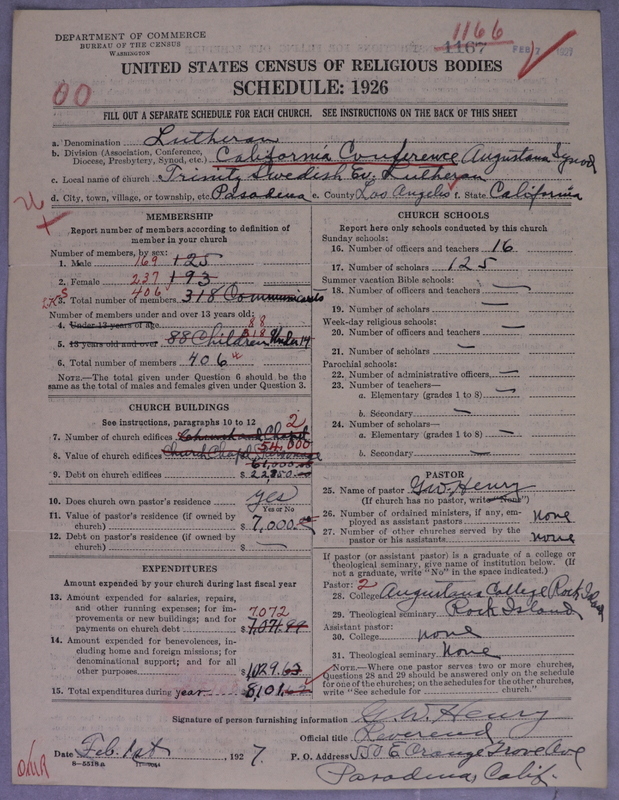 DEPARTMENT OF COMMERCE
BUREAU OF THE CENSUS
WASHINGTON
1166
1167
FEB 7 1927
UNITED STATES CENSUS OF RELIGIOUS BODIES
SCHEDULE: 1926
00
FILL OUT A SEPARATE SCHEDULE FOR EACH CHURCH. SEE INSTRUCTIONS ON THE BACK OF THIS SHEET
a. Denomination Lutheran
b. Division (Association, Conference, Diocese, Presbytery, Synod, etc.) California Conference Augustana Synod
c. Local name of church Trinity Swedish Ev. Lutheran
d. City, town, village, or township, etc. Pasadena e. County Los Angeles f. State California
MEMBERSHIP
Report number of members according to definition of member in your church
Number of members, by sex:
1. Male 169 125
2. Female 237 193
3. Total number of members 406 318 Communicants
Number of members under and over 13 years old:
4. Under 13 years of age 88
5. 13 years old and over 318 88 Children Under 14
6. Total number of members 406
NOTE.—The total given under Question 6 should be the same as the total of males and females given under Question 3.
CHURCH BUILDINGS
See instructions, paragraphs 10 to 12
7. Number of church edifices 2 Church and Chapel
8. Value of church edifices 54,000 Church Chapel Parsonage
$ 61,000.00
9. Debt on church edifices $ 22,850.00
10. Does church own pastor's residence yes
Yes or No
11. Value of pastor's residence (if owned by church) $ 7,000.00
12. Debt on pastor's residence (if owned by church) $ —
EXPENDITURES
Amount expended by your church during last fiscal year
13. Amount expended for salaries, repairs, and other running expenses; for improvements or new buildings; and for payments on church debt 7,072 $ 7,071.99
14. Amount expended for benevolences, including home and foreign missions; for denominational support; and for all other purposes $ 1029.63
15. Total expenditures during year $ 8,101.62
CHURCH SCHOOLS
Report here only schools conducted by this church
Sunday schools:
16. Number of officers and teachers 16
17. Number of scholars 125
Summer vacation Bible schools:
18. Number of officers and teachers —
19. Number of scholars —
Week-day religious schools:
20. Number of officers and teachers —
21. Number of scholars —
Parochial schools:
22. Number of administrative officers —
23. Number of teachers—
a. Elementary (grades 1 to 8) —
b. Secondary —
24. Number of scholars—
a. Elementary (grades 1 to 8) —
b. Secondary —
PASTOR
25. Name of pastor G.W. Henry
(If church has no pastor, write "None")
26. Number of ordained ministers, if any, employed as assistant pastors none
27. Number of other churches served by the pastor or his assistants none
If pastor (or assistant pastor) is a graduate of a college or theological seminary, give name of institution below. (If not a graduate, write "No" in the space indicated.)
Pastor: 2
28. College Augustana College Rock Island
29. Theological seminary Rock Island
Assistant pastor:
30. College none
31. Theological seminary None
NOTE.—Where one pastor serves two or more churches, Questions 28 and 29 should be answered only on the schedule for one of the churches; on the schedules for the other churches, write "See schedule for church."
Signature of person furnishing information G. W. Henry
Official title Reverend
Date Feb. 1st, 1927. P. O. Address 550 E Orange Grove Ave
8—5518a
Pasadena, Calif.